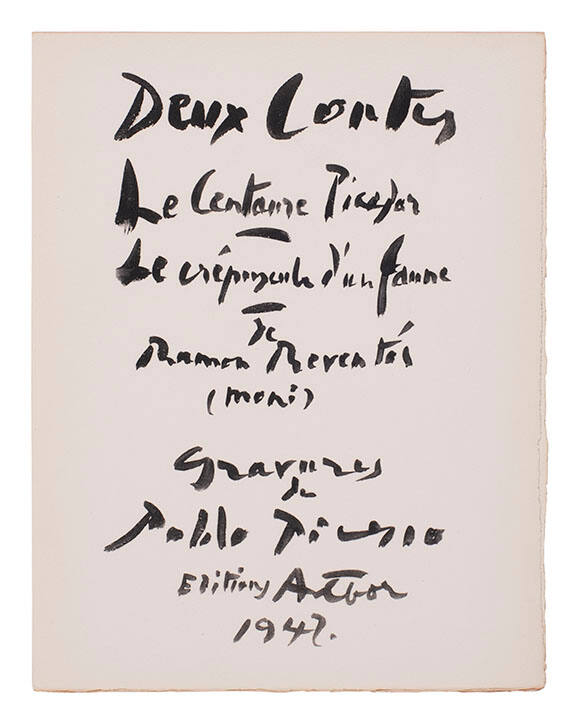 Deux Contes
Le Centaure Picador
Le crépuscule d'un faune
de
Ramon Reventós
(moni)
Gravures
de
Pablo Picasso
Editions Albor
1947.